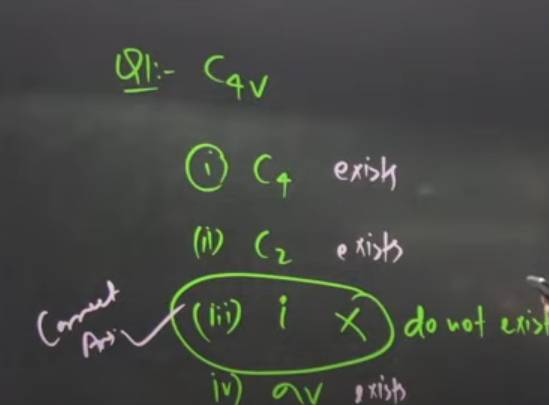 Q1:- C4v
(i) C4 exists
(ii) C2 exists
Correct Ans ✓ (iii) i X do not exist
iv) σv exists